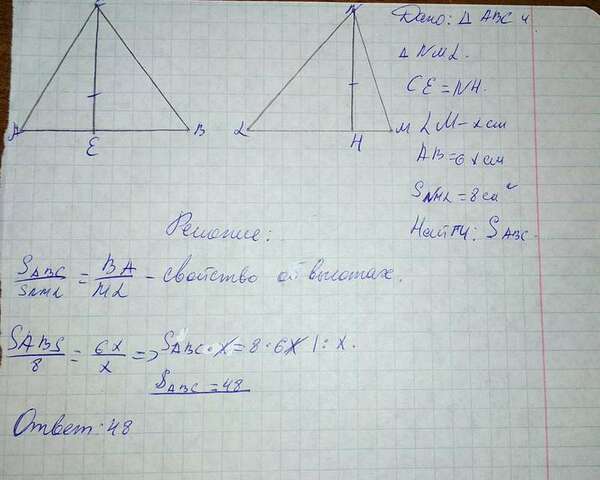 C
N
A
B
E
L
M
H
Дано: Δ ABC и
Δ NML.
CE = NH.
LM - x см
AB = 6x см
S NML = 8 см²
Найти: S ABC.
Решение:
S ABC / S NML = BA / ML - свойство о высотах.
S ABS / 8 = 6x / x => S ABC · x = 8 · 6x | : x.
S ABC = 48
Ответ: 48